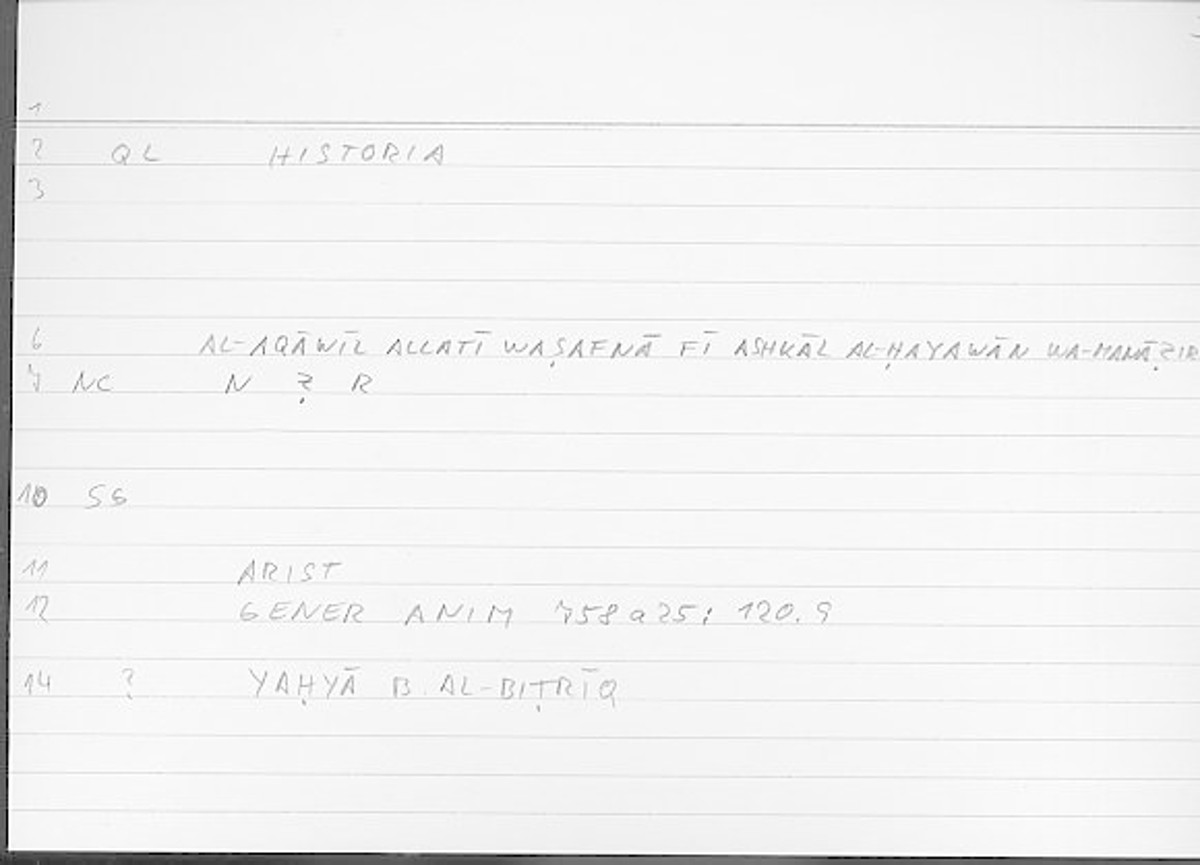 1
2 QL HISTORIA
3
6 AL-AQĀWĪL ALLATĪ WAṢAFNĀ FĪ ASHKĀL AL-ḤAYAWĀN WA-MANĀẒIR
7 NC N Ẓ R
10 SG
11 ARIST
12 GENER ANIM 758a25; 120.9
14 ? YAḤYĀ B. AL-BIṬRĪQ